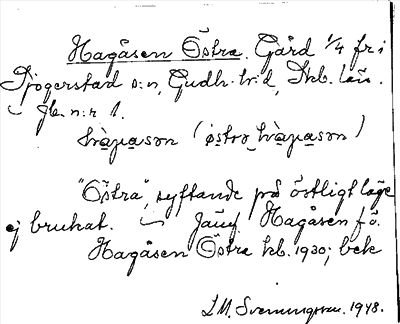 Hagåsen Östra. Gård 1/4 fr i
Sjögerstad s:n, Gudh. hd, Skb. län.
Jb. n:r 1.
hàgåsən (östrə hàgåsən)
"Östra", syftande på östligt läge
ej brukat. ~ Jämf. Hagåsen fö.
Hagåsen Östra kb. 1930; bek
L. M. Svenungsson. 1948.